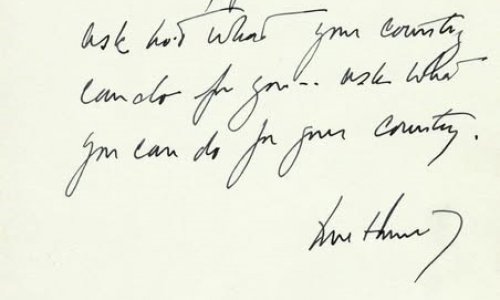 ask not what your country
can do for you -- ask what
you can do for your country.